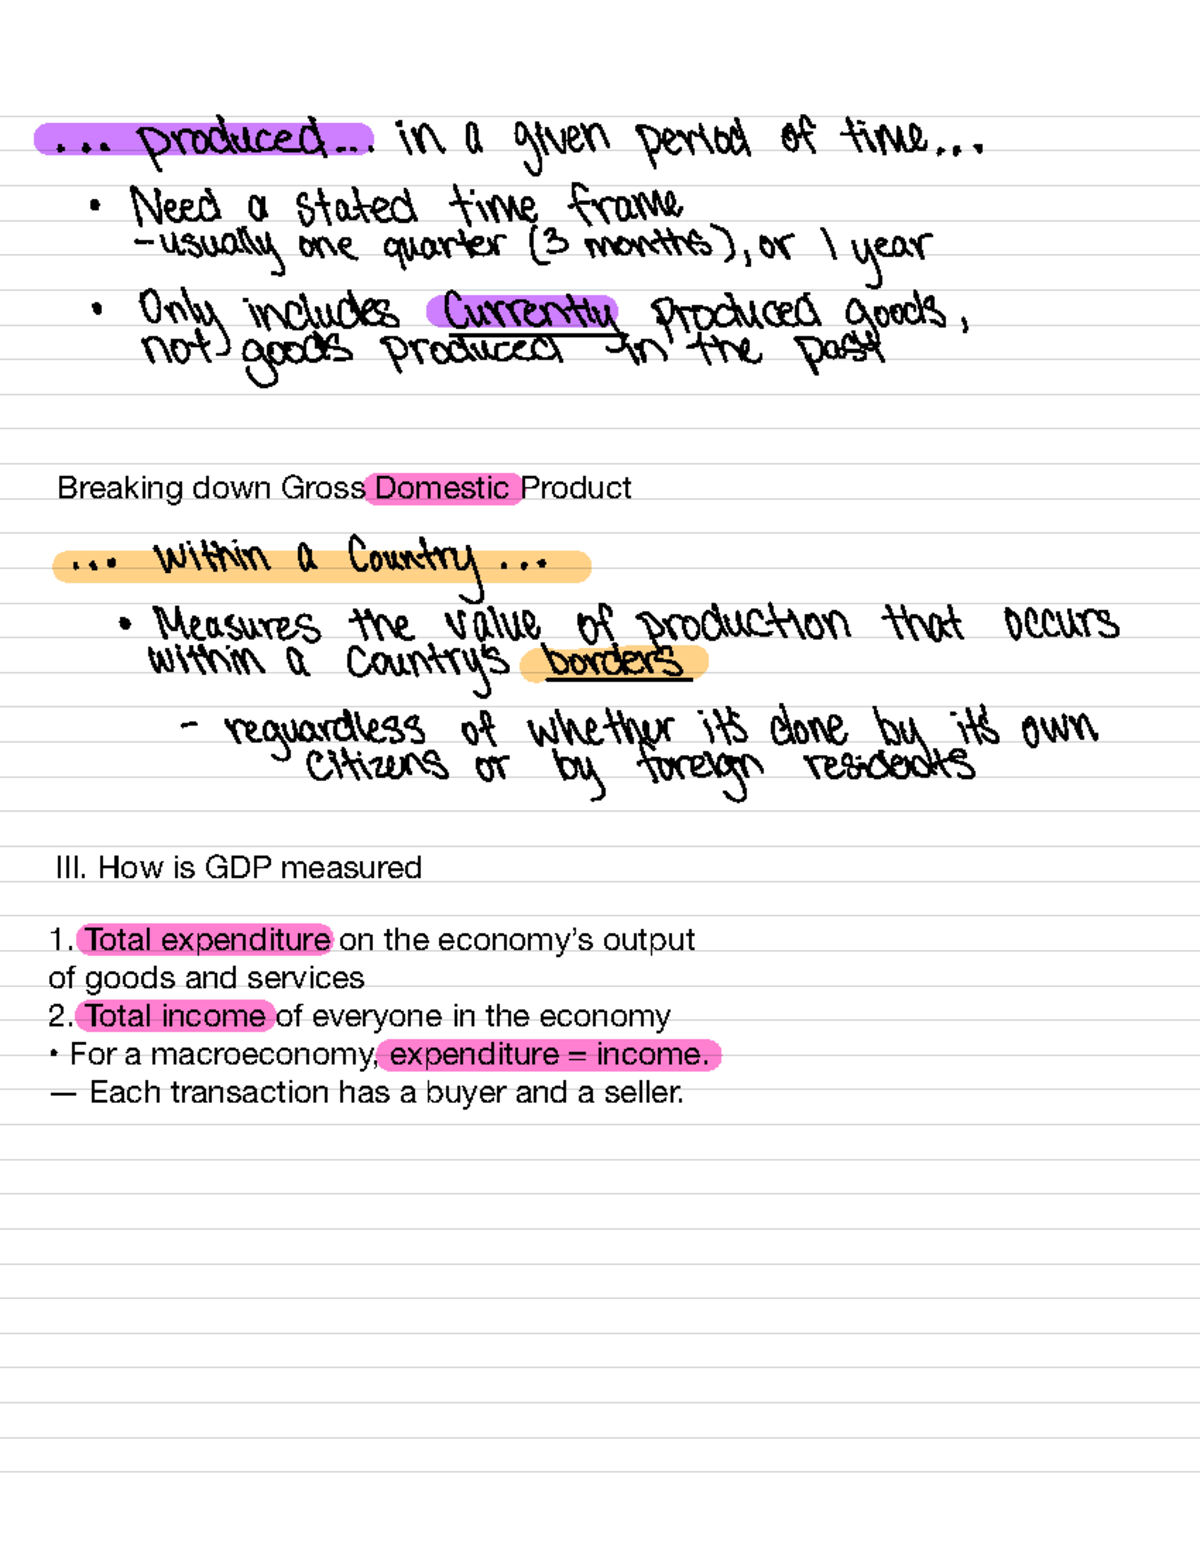 ... produced... in a given period of time...
• Need a stated time frame
-usually one quarter (3 months), or 1 year
• Only includes Currently produced goods,
not goods produced in the past
Breaking down Gross Domestic Product
... within a Country ...
• Measures the value of production that occurs
within a Country's borders
- reguardless of whether it's done by it's own
citizens or by foreign residents
III. How is GDP measured
1. Total expenditure on the economy's output
of goods and services
2. Total income of everyone in the economy
• For a macroeconomy, expenditure = income.
— Each transaction has a buyer and a seller.